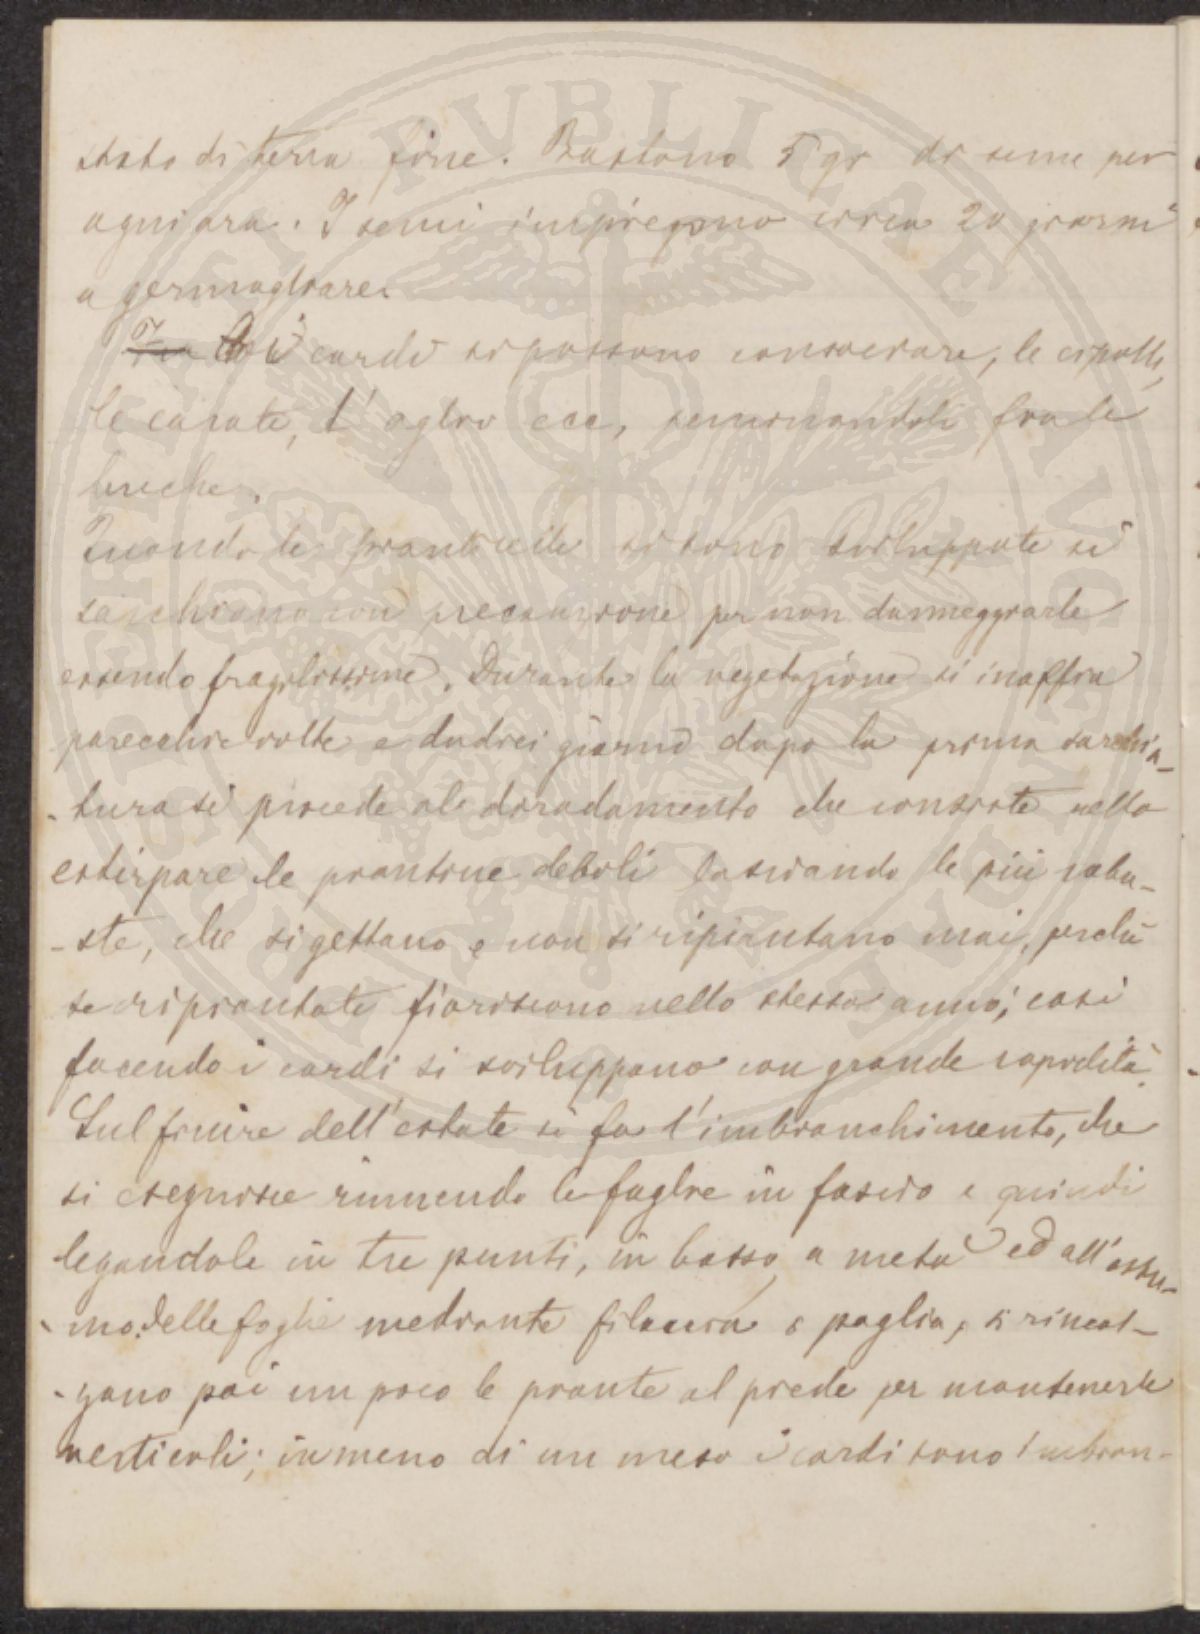 strato di terra fine. Bastono 5 gr di seme per
ogni ara. I semi impiegano circa 20 giorni
a germogliare.
Ai cardi si possono consociare, le cipolle,
le carote, l'aglio ecc, seminandoli fra le
buche.
Quando le pianticelle si sono sviluppate si
sarchiano con precauzione per non danneggiarle
essendo fragilissime. Durante la vegetazione si inaffia
parecchie volte e dodici giorni dopo la prima sarchia-
-tura si procede al diradamento che consiste nello
estirpare le piantine deboli lasciando le più robu-
-ste, che si gettano e non si ripiantano mai, perchè
se ripiantate fioriscono nello stesso anno; così
facendo i cardi si sviluppano con grande rapidità.
Sul finire dell'estate si fa l'imbianchimento, che
si eseguisce riunendo le foglie in fascio e quindi
legandole in tre punti, in basso, a metà ed all'estre-
-mo delle foglie mediante filaccia o paglia, si rincal-
-zano poi un poco le piante al piede per mantenerle
verticali; in meno di un mese i cardi sono imbian-
PVBLICAE LVCI